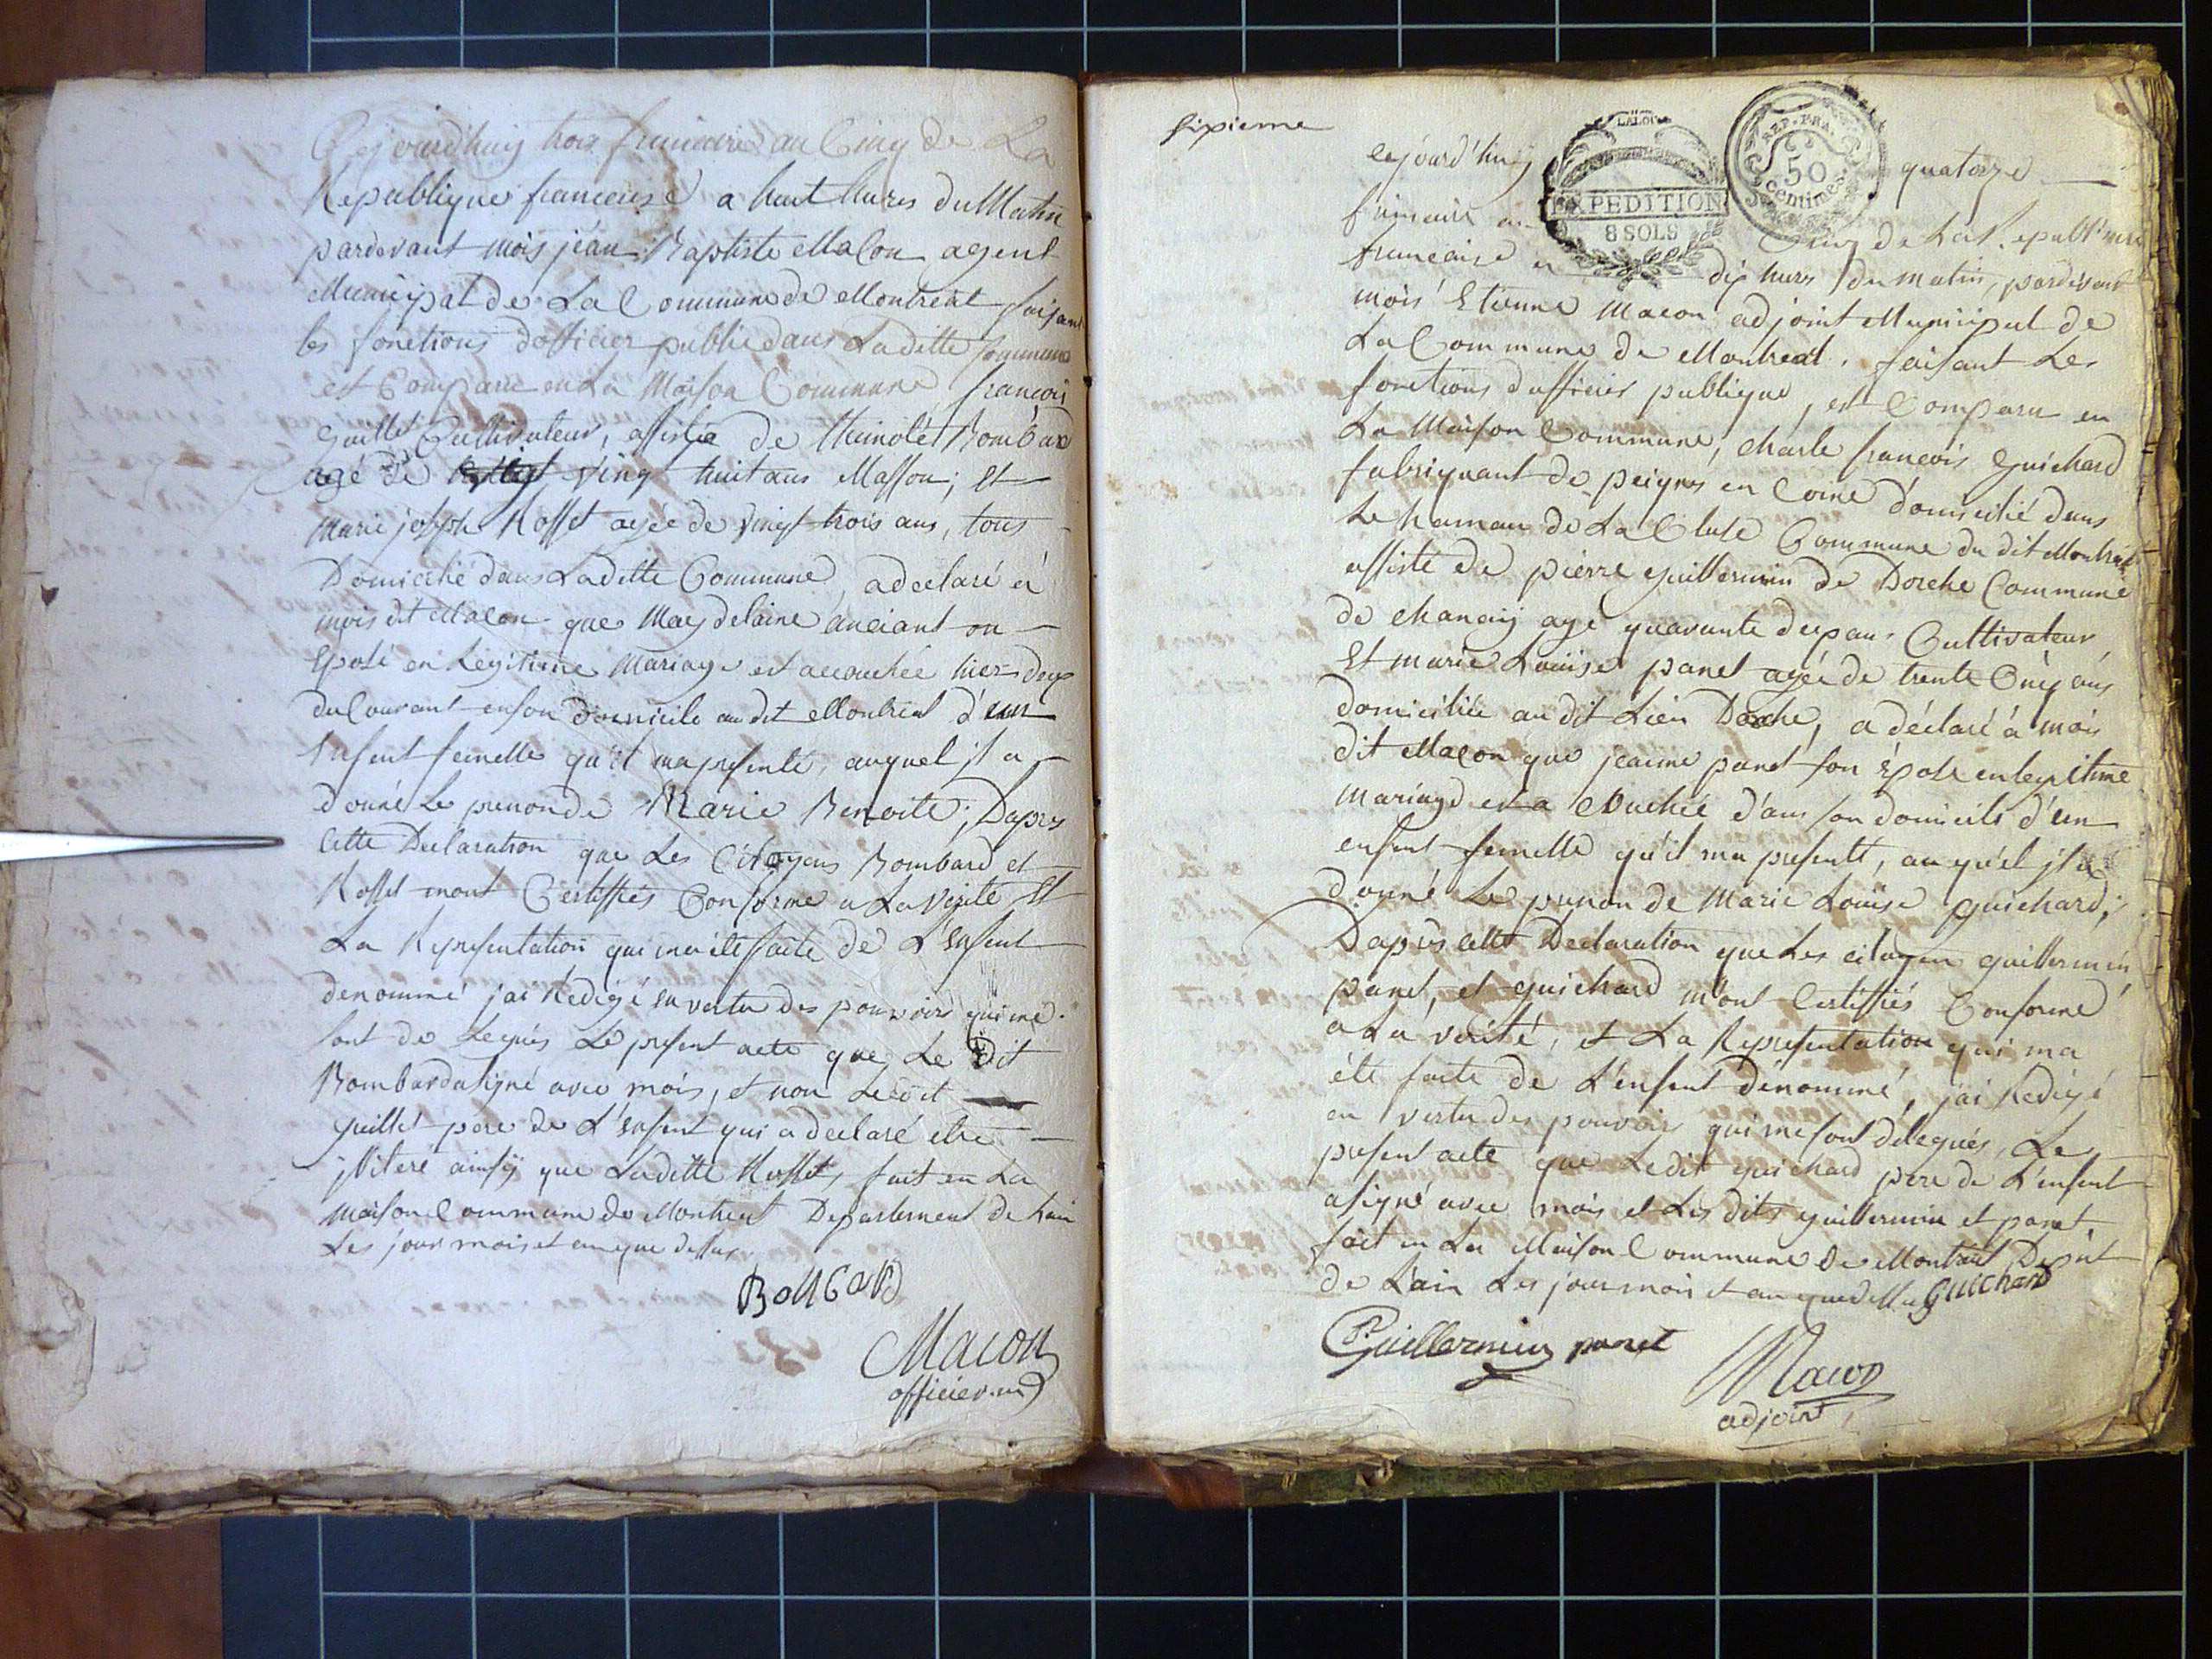 Cejourd'huy trois frimaire an Cinq de La
Republique francaise a huit hures du Matin
pardevant mois jéan Baptiste Macon agent
Municipal de La Commune de Montreal faisant
les fonctions d'officier public dans Laditte Commune
est Comparu en La Maison Commune, francois
Guillet Cultivateur, assistée de Bombard
agé de vingt huit ans Masson; Et
Marie joseph Rosset agée de vingt trois ans, tous
Domicilié dans Laditte Commune, a déclaré à
mois dit Macon que Magdelaine anciant on
Epose en Legitime Mariage est accouchée hier deux
du Courant en son domicile au dit Montreal d'un
Enfent femelle qu'il ma presenté, auquel jl a
donné Le prenon de Marie Benoite; Dapres
Cette Declaration que Les Citoyens Bombard et
Rosset mont Certiffiés Conforme a La Vérité Et
La Representation qui ma été faite de L'enfent
denommé jai Redigé en vertu des pouvoirs qui me
sont de Legués Le present acte que Le Dit
Bombard a signé avec mois, et non Le dit
Guillet pere de L'enfent qui a declaré etre
jlliteré ainsÿ que Laditte Rosset, fait en La
Maison Commune de Montreal Departement de Lain
Les jour mois et an que dessus
BomBard
Macon
officier
sixieme
LA LOI
EXPEDITION
8 SOLS
REP. FRA.
50
centimes
cejourd'huy quatorze
frimaire an Cinq de La Republique
francaise a dix hures du matin, pardevant
mois Etienne Macon adjoint Municipal de
La Commune de Montreal. faisant Les
fonctions d'officier publique, est Comparu en
La Maison Commune, charle francois Guichard
fabriquant de peignes en Corne domicilié dans
Le hamau de La Cluse Commune du dit Montreal
assisté de pierre guillermin de Dorche Commune
de chanaÿ agé quarante deux ans Cultivateur
Et marie Louïse panet agée de trente Cinq ans
domiciliée au dit Lieu Dorche, a déclaré à mois
dit Macon que jeanne panet son Epose en legitime
mariage est a couchée d'ans son domicile d'un
enfent femelle qu'il ma presenté, au quel jl a
donné Le prenon de Marie Louïse guichard;
Dapres cette Declaration que Les citoyen guillermin
panet, et guichard m'ont Certiffiés Conforme
a La vérité, et La Representation qui ma
été faite de L'enfent dénommé, j'ai Redigé
en vertu des pouvoir qui me sont délegués, Le
present acte que Ledit guichard pere de L'enfent
a signé avec mois et Les dits guillermin et panet.
fait en La Maison Commune de Montreal Dept
de Lain Les jour mois et an que dessus Guichard
P. Guillermin panet
Macon
adjoint